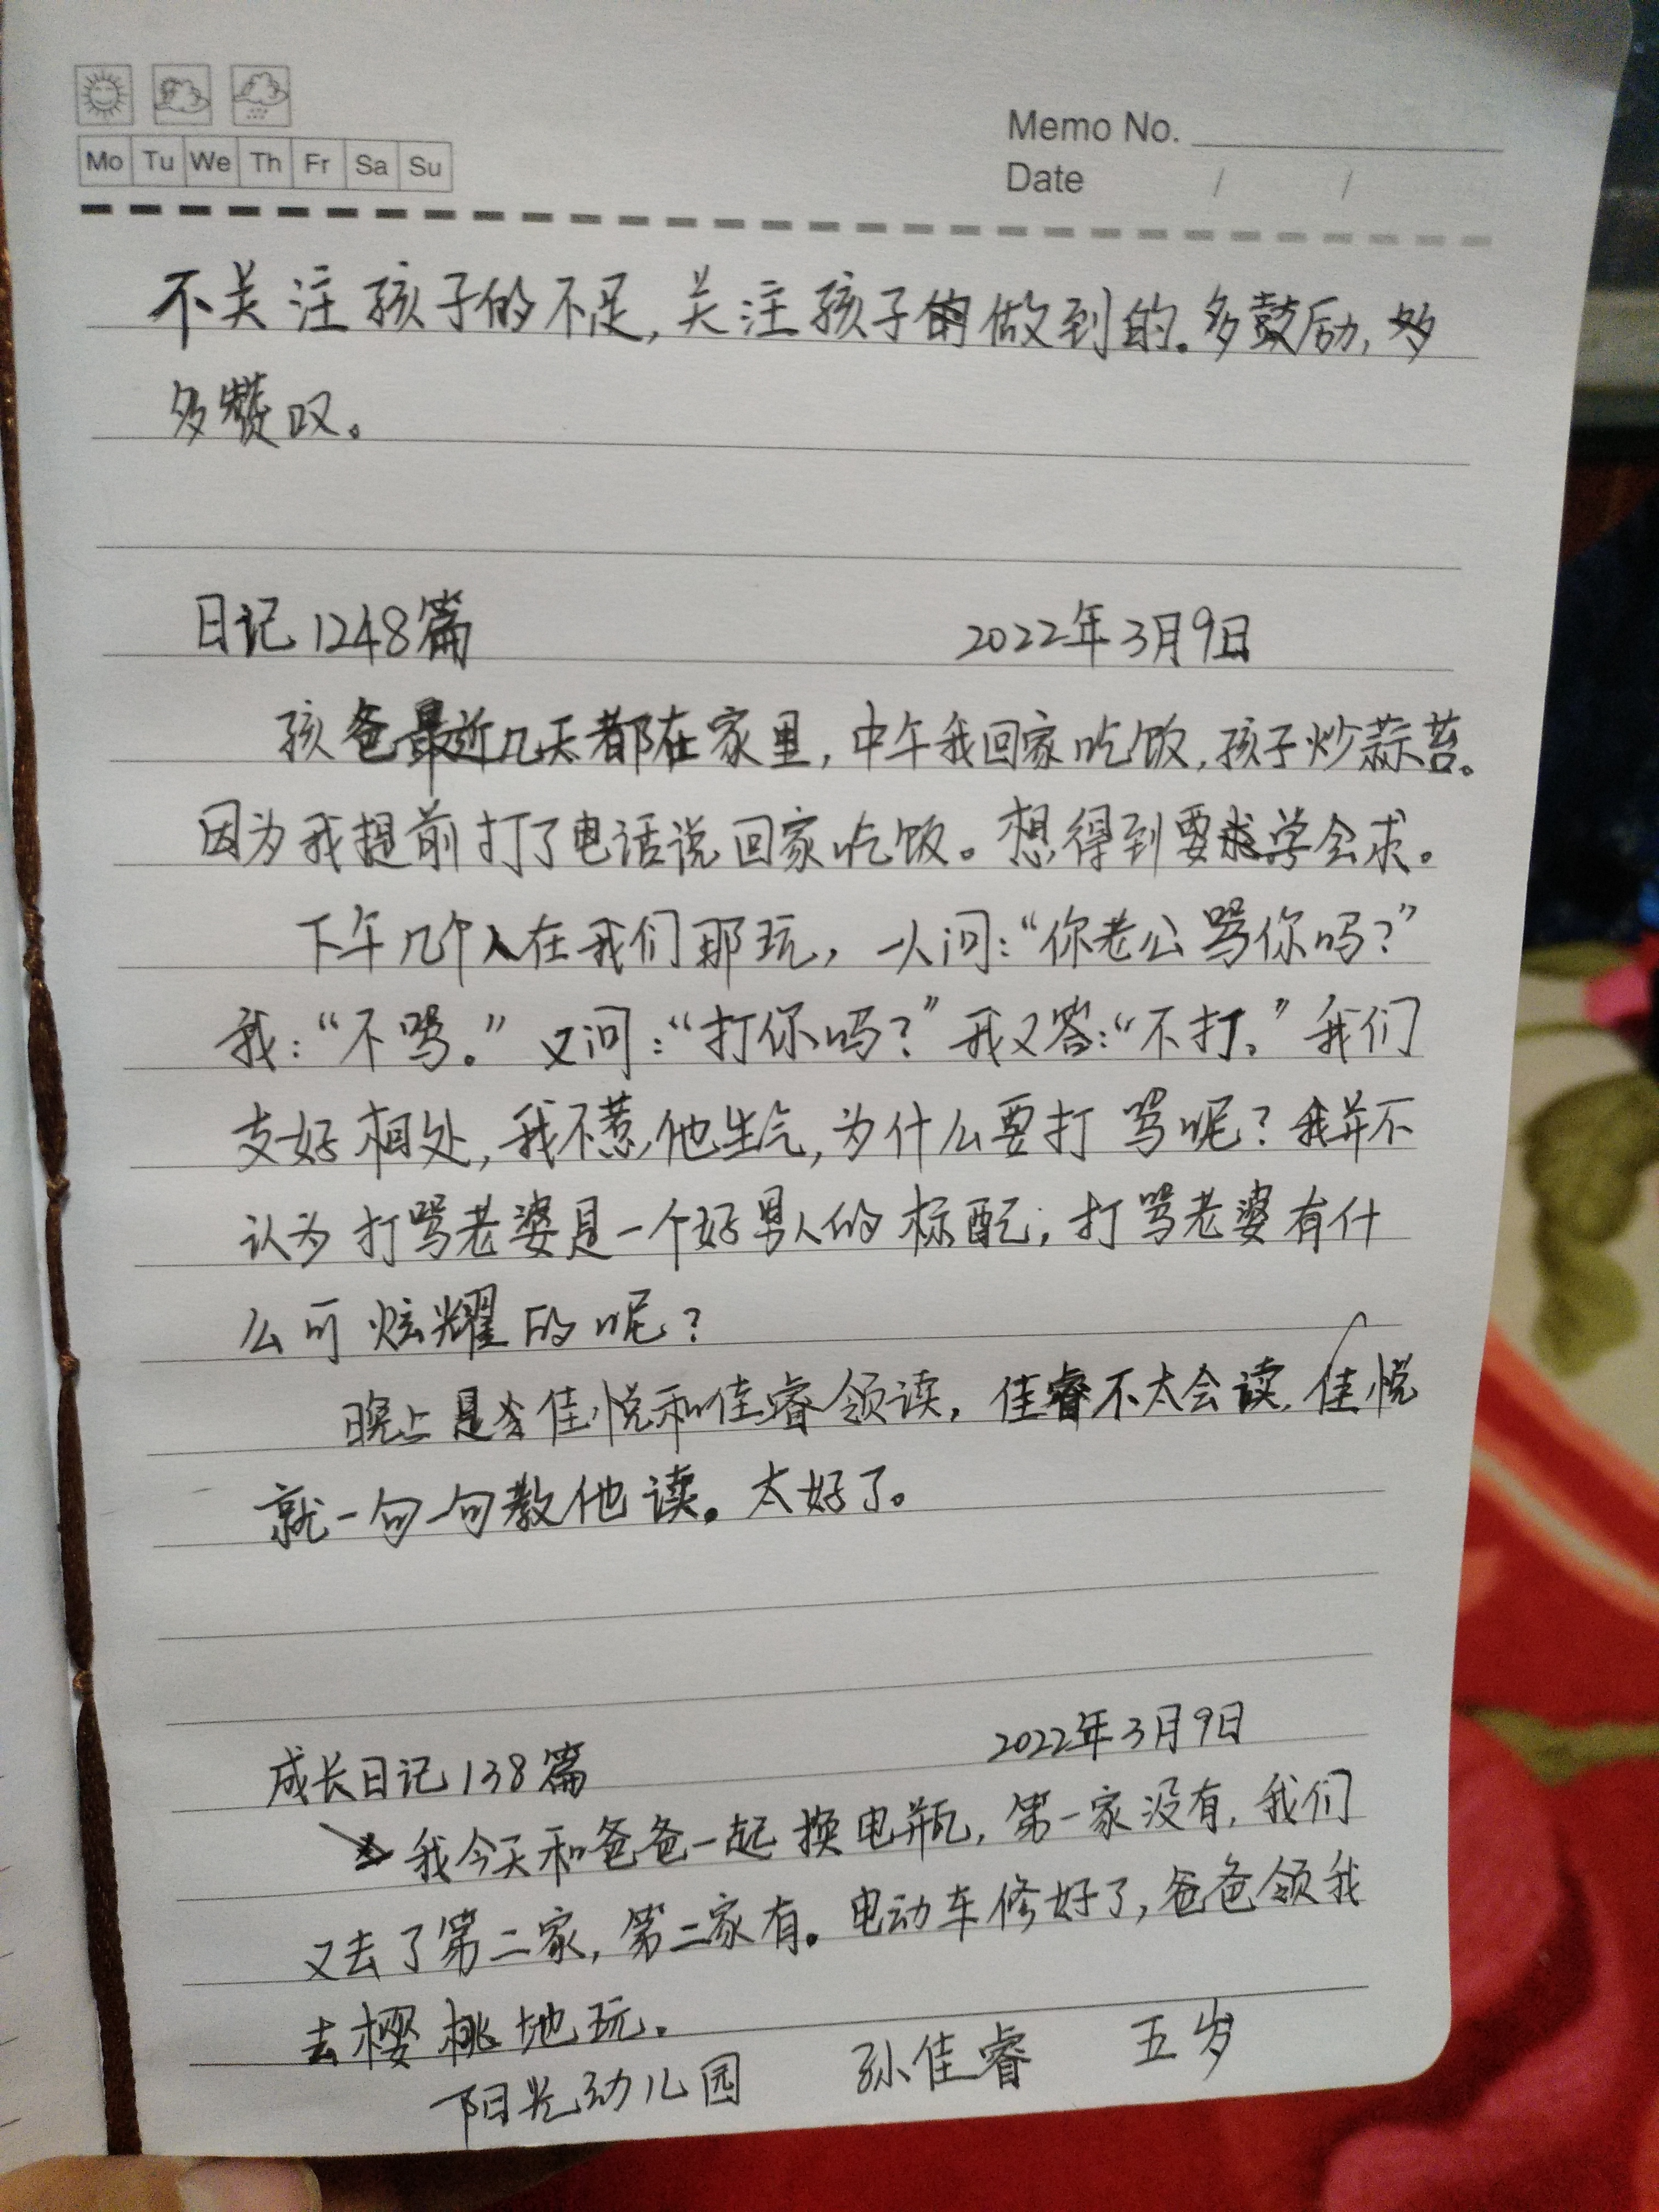 Mo Tu We Th Fr Sa Su
Memo No.
Date / /
不关注孩子的不足,关注孩子做到的。多鼓励,
多赞叹。
日记1248篇 2022年3月9日
孩爸最近几天都在家里,中午我回家吃饭,孩子炒蒜苔。
因为我提前打了电话说回家吃饭。想得到要学会求。
下午几个人在我们那玩,一人问:“你老公骂你吗?”
我:“不骂。”又问:“打你吗?”我又答:“不打。”我们
友好相处,我不惹他生气,为什么要打骂呢?我并不
认为打骂老婆是一个好男人的标配,打骂老婆有什
么可炫耀的呢?
晚上是佳悦和佳睿领读,佳睿不太会读,佳悦
就一句一句教他读。太好了。
成长日记138篇 2022年3月9日
我今天和爸爸一起换电瓶,第一家没有,我们
又去了第二家,第二家有。电动车修好了,爸爸领我
去樱桃地玩。
阳光幼儿园 孙佳睿 五岁